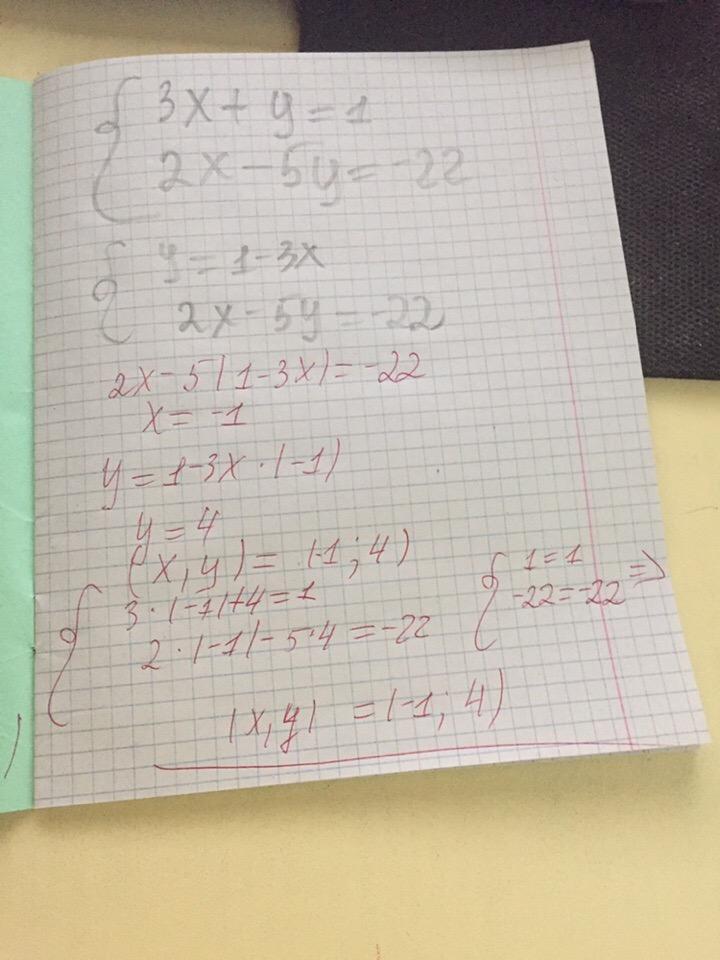 3x + y = 1
2x - 5y = -22
y = 1 - 3x
2x - 5y = -22
2x - 5(1 - 3x) = -22
x = -1
y = 1 - 3x · (-1)
y = 4
(x, y) = (-1; 4)
3 · (-1) + 4 = 1
2 · (-1) - 5·4 = -22
1 = 1
-22 = -22 =>
(x, y) = (-1; 4)